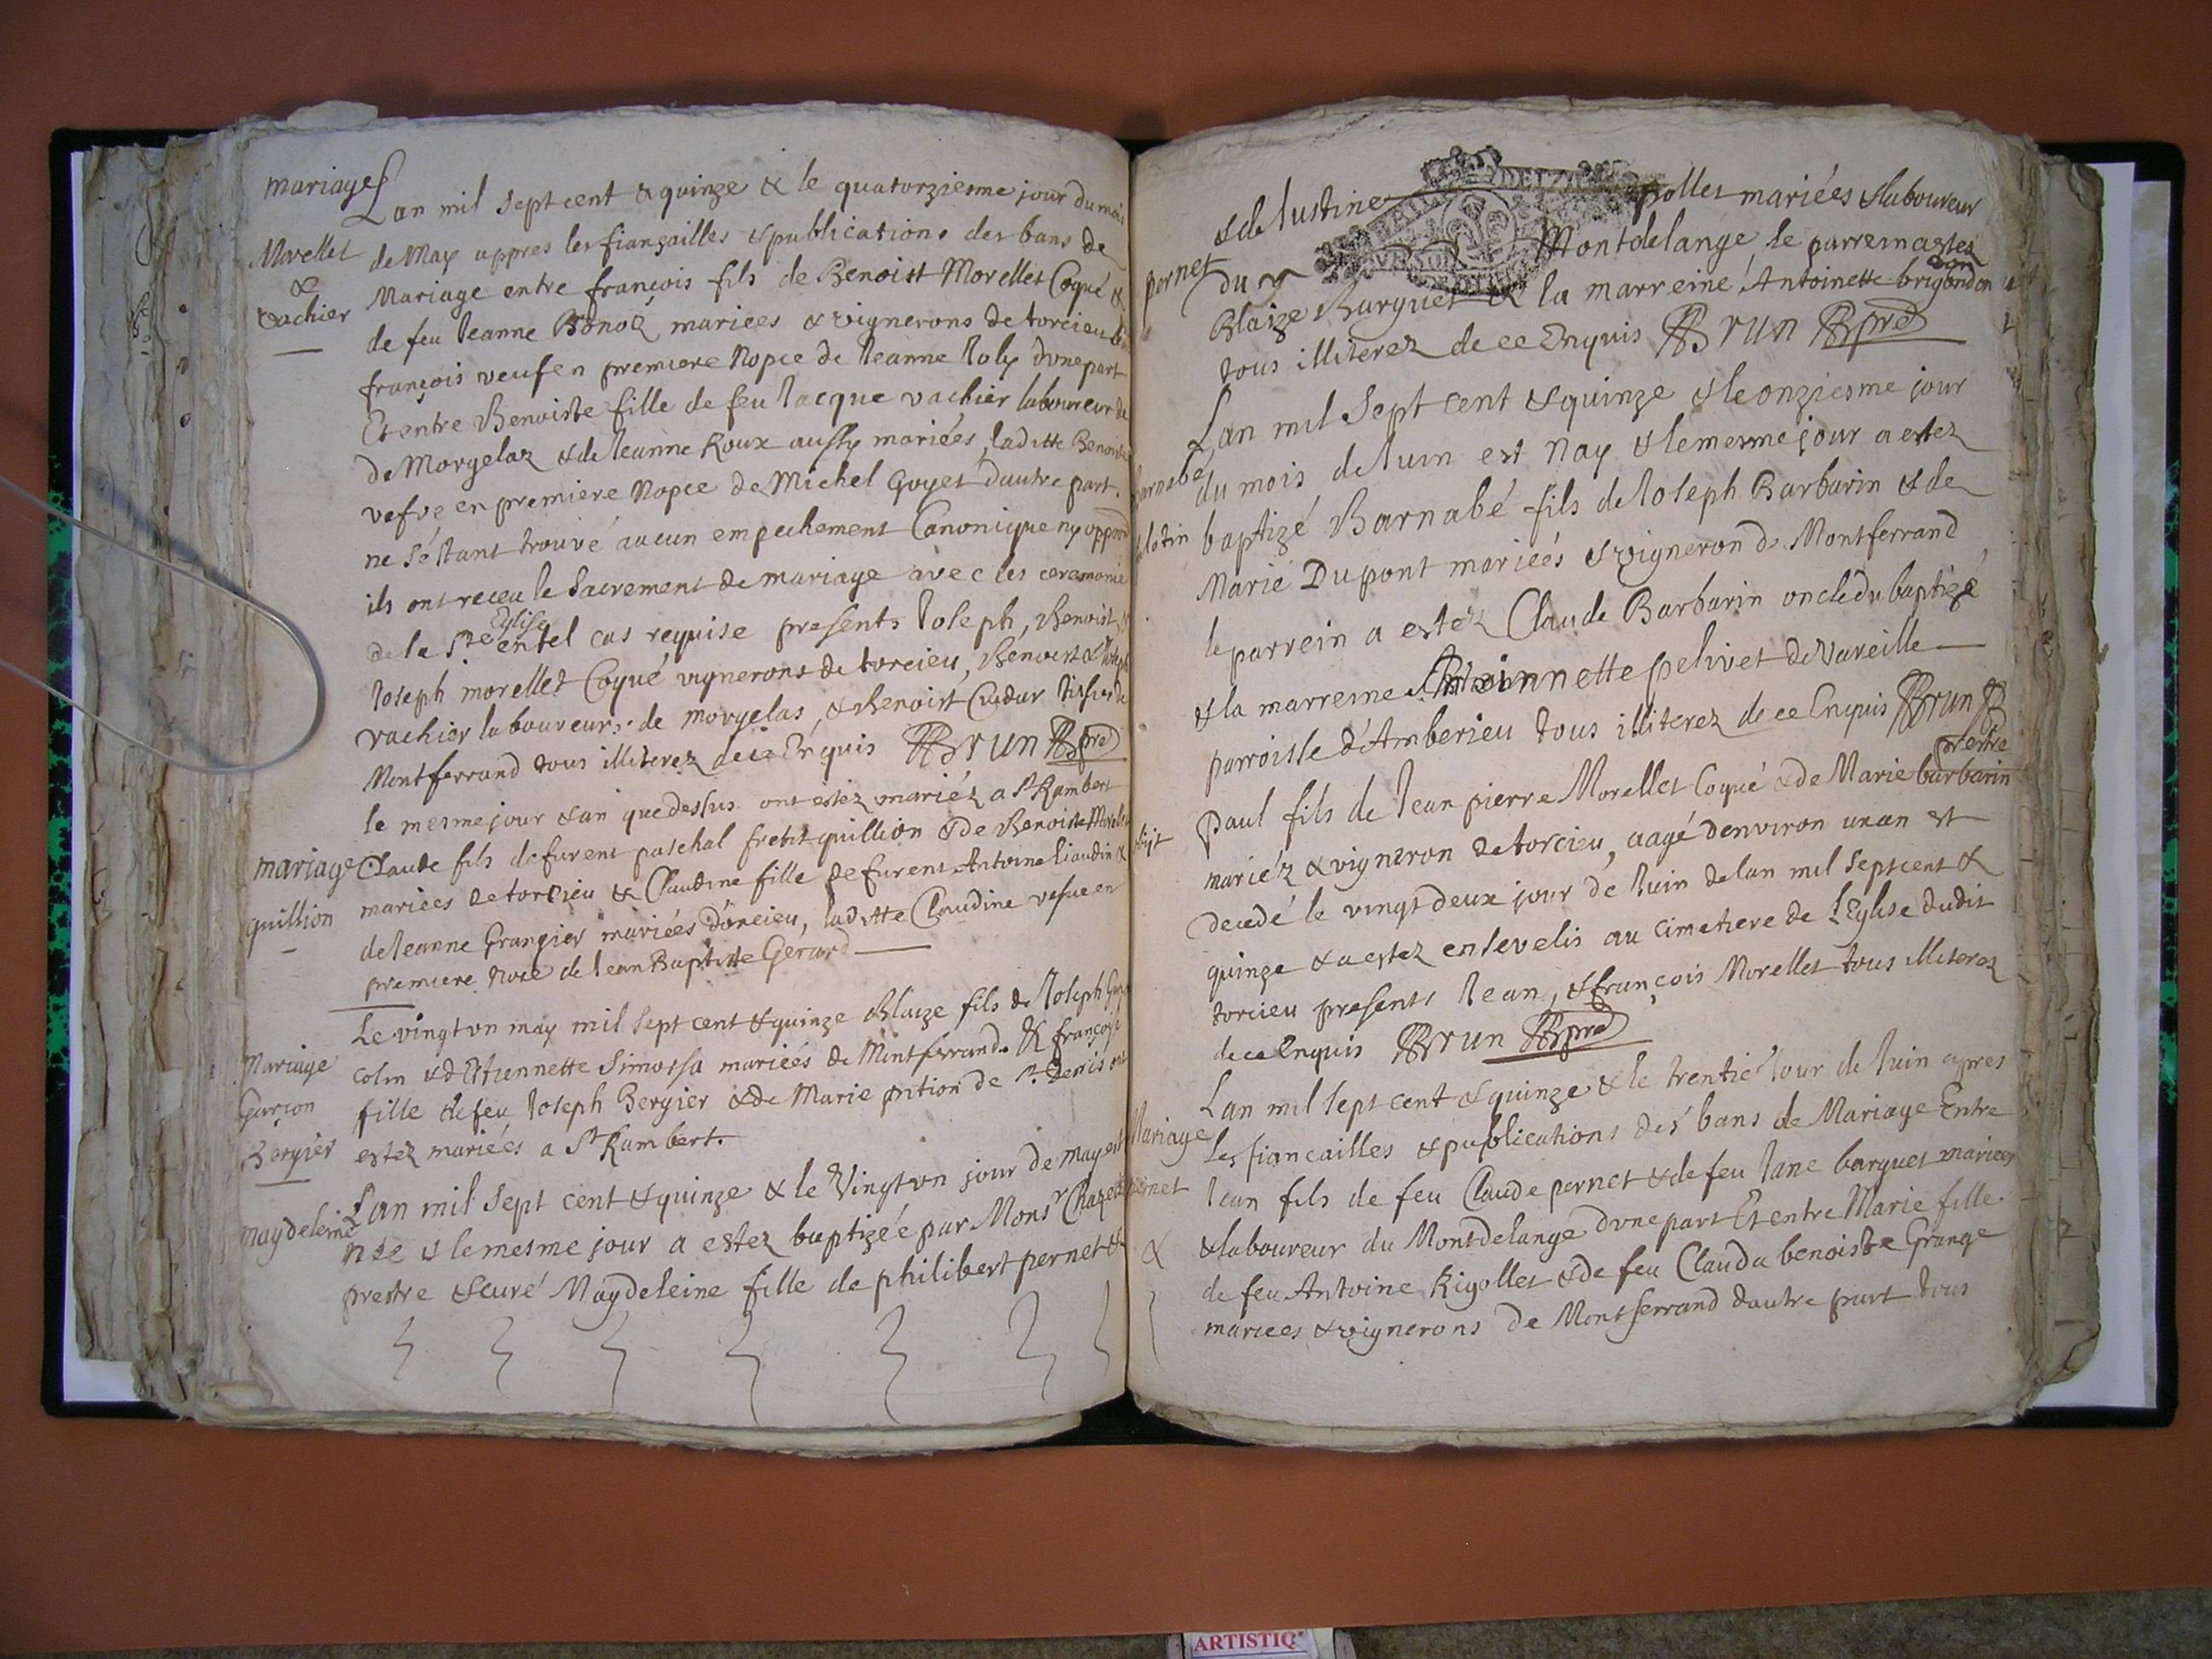 mariage
Lan mil sept cent & quinze & le quatorziesme jour du mois
Morellet
&
vachier
de May appres les fiançailles & publications des bans de
Mariage entre françois fils de Benoist Morellet Coqué &
de feu Jeanne Bonoz mariees & vignerons de torcieu
françois veuf en premiere Nopce de Jeanne Joly dune part
Et entre Benoiste fille de feu Jacque vachier laboureur de
de Morgelaz & de Jeanne Roux aussy mariées, laditte Benoiste
vefve en premiere Nopce de Michel Goyet dautre part.
ne séstant trouvé aucun empechement Canonique ny oppon
ils ont receu le Sacrement de mariage avec les ceremonie
de la Ste Eglise en tel cas requise presents Joseph, Benoist &
Joseph morellet Coqué vignerons de torcieu, Benoist & Joseph
vachier laboureurs de morgelas, & Benoist Cudar tissier de
Montferrand tous illiterez de ce Enquis Brun pre
mariage
quillion
le mesme jour & an que dessus ont estez mariéz a St Rambert
Claude fils de furent paschal frebet quillion & de Benoiste Morelle
mariées de torcieu & Claudine fille de furent Antoine liaudin &
de Jeanne Grangier mariées d'oncieu, laditte Claudine vefue en
premiere Noce de Jean Baptiste Gerard
Mariage
Garçon
Bergier
Le vingt vn may mil sept cent & quinze Blaize fils de Joseph
colin & d'Estiennette Simossa mariées de Montferrand. & françoyse
fille de feu Joseph Bergier & de Marie prition de St. Denis ont
estez mariées a St Rambert.
Magdeleine
Lan mil sept cent & quinze & le Vingt vn jour de may est
née & le mesme jour a estez baptizée par Monsr
prestre & curé Magdeleine fille de philibert pernet &
& de Justine mariées & laboureur
pernet
du Montdelange, le parrein a estez
Blaize Burguet & la marreine Antoinette brigondon
tous illiterez de ce Enquis Brun pre
Barnabé
Lan mil Sept cent & quinze & le onziesme jour
du mois de Juin est Nay & le mesme jour a estez
baptizé Barnabé fils de Joseph Barbarin & de
Marie Dupont mariées & vigneron de Montferrand
le parrein a estéz Claude Barbarin oncle du baptizé
& la marreine Antoinnette pelivet de Vareille
parroisse d'Amberieu tous illiterez de ce Enquis Brun
prestre
Paul fils de Jean pierre Morellet Coqué & de Marie barbarin
mariéz & vigneron de torcieu, aagé denviron un an est
decedé le vingt deux jour de Juin de lan mil sept cent &
quinze & a estez ensevelis au cimetiere de l'Eglise dudit
torcieu presents Jean, & françois Morellet tous illiterez
de ce Enquis Brun pre
Mariage
pernet
&
Lan mil sept cent & quinze & le trentié Jour de Juin apres
les fiancailles & publications des bans de Mariage Entre
Jean fils de feu Claude pernet & de feu Jane barguet mariees
& laboureur du Montdelange dvne part Et entre Marie fille
de feu Antoine Rigollet & de feu Clauda benoiste Grange
mariees & vignerons de Montferrand dautre part tous
ARTISTIQ